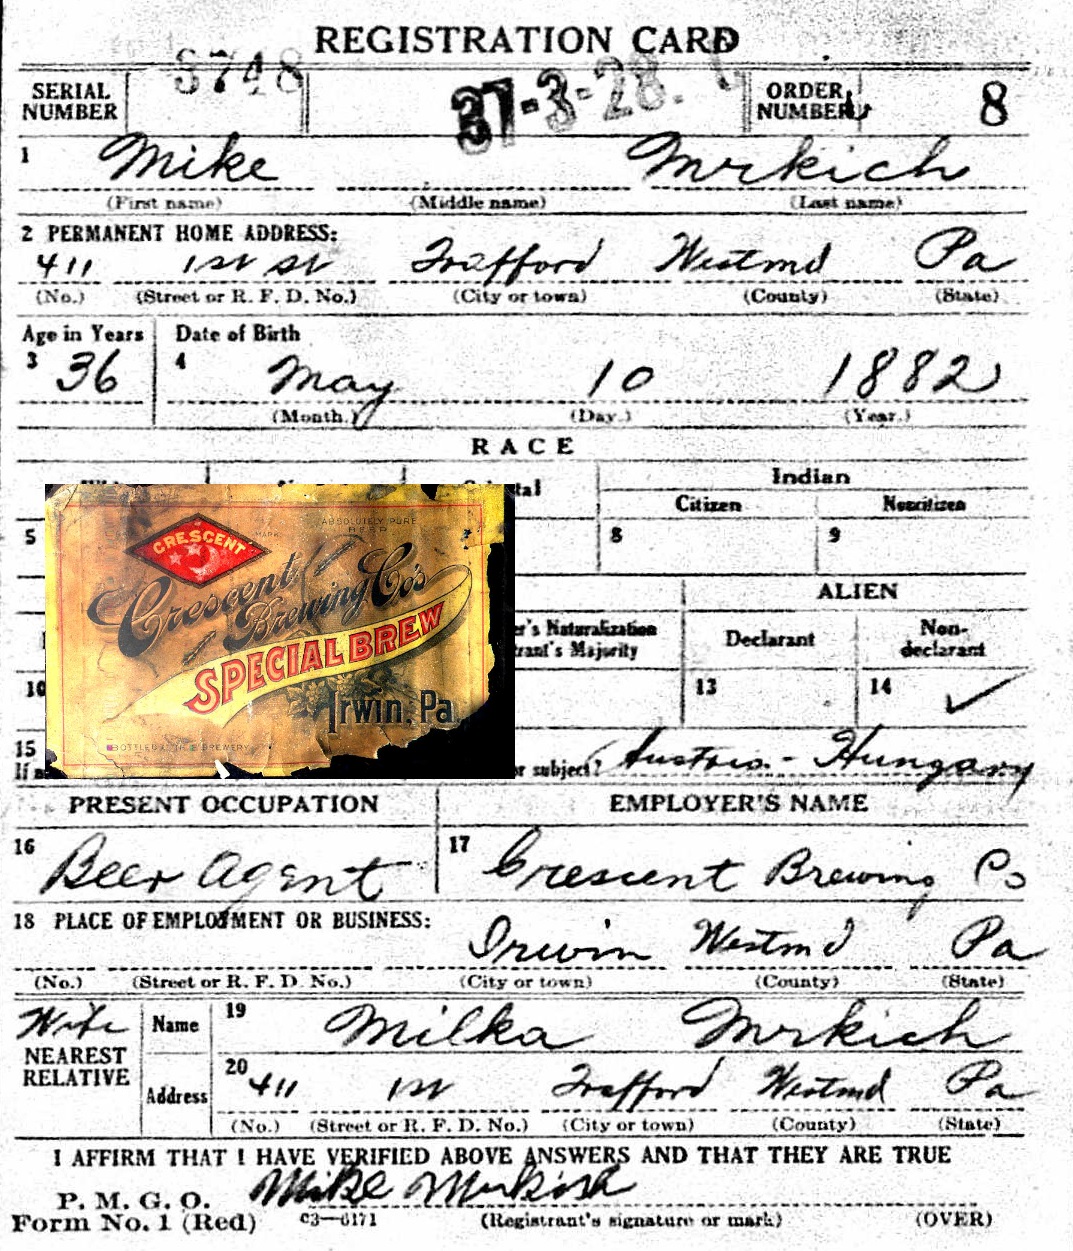 REGISTRATION CARD
SERIAL NUMBER 3748 37-3-28. ORDER NUMBER 8
1 Mike Mrkich
(First name) (Middle name) (Last name)
2 PERMANENT HOME ADDRESS:
411 1st st Trafford Westmd Pa
(No.) (Street or R. F. D. No.) (City or town) (County) (State)
Age in Years Date of Birth
3 36 4 May 10 1882
(Month.) (Day.) (Year.)
RACE
Indian
Citizen Noncitizen
5 8 9
ALIEN
Declarant Non-declarant
's Naturalization
's Majority
10 13 14 ✓
15
or subject? Austria-Hungary
CRESCENT
MARK
ABSOLUTELY PURE
BEER
Crescent
Brewing Co's
SPECIAL BREW
Irwin, Pa
BOTTLED BREWERY
PRESENT OCCUPATION EMPLOYER'S NAME
16 Beer Agent 17 Crescent Brewing Co
18 PLACE OF EMPLOYMENT OR BUSINESS:
Irwin Westmd Pa
(No.) (Street or R. F. D. No.) (City or town) (County) (State)
Wife
NEAREST RELATIVE
Name 19 Milka Mrkich
Address 20 411 1st Trafford Westmd Pa
(No.) (Street or R. F. D. No.) (City or town) (County) (State)
I AFFIRM THAT I HAVE VERIFIED ABOVE ANSWERS AND THAT THEY ARE TRUE
P. M. G. O. Mike Mrkich
Form No. 1 (Red) C3—6171 (Registrant's signature or mark) (OVER)